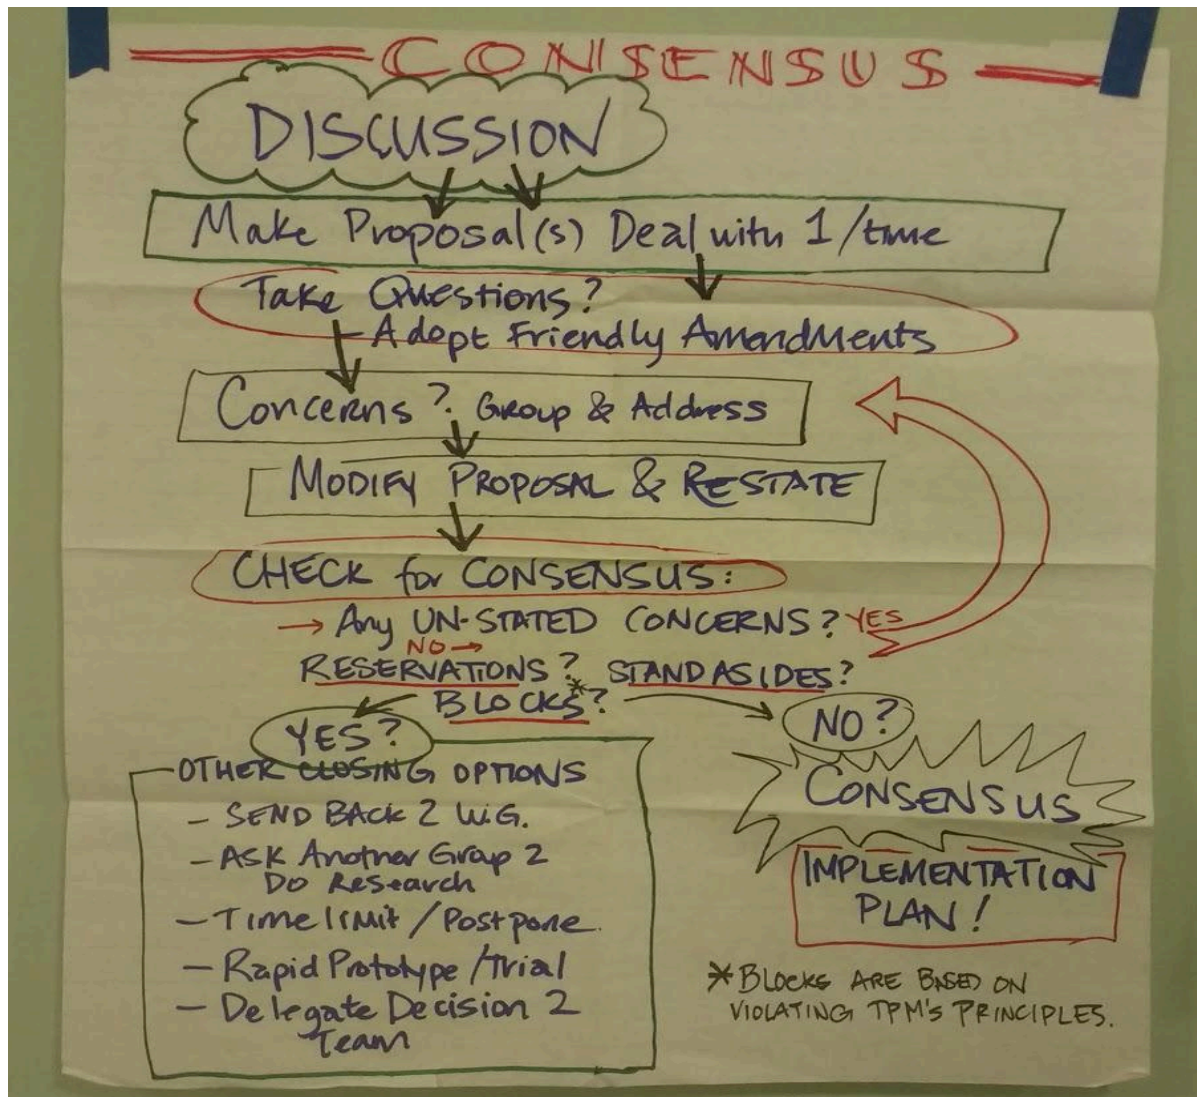 CONSENSUS
DISCUSSION
Make Proposal(s) Deal with 1/time
Take Questions?
- Adopt Friendly Amendments
Concerns? Group & Address
MODIFY PROPOSAL & RESTATE
CHECK for CONSENSUS:
→ Any UN-STATED CONCERNS? YES
NO →
RESERVATIONS? STAND ASIDES?
BLOCKS?*
YES?
NO?
OTHER CLOSING OPTIONS
- SEND BACK 2 W.G.
- ASK Another Group 2
Do Research
- Time limit / Postpone.
- Rapid Prototype / Trial
- Delegate Decision 2
Team
CONSENSUS
IMPLEMENTATION
PLAN!
* BLOCKS ARE BASED ON
VIOLATING TPM'S PRINCIPLES.